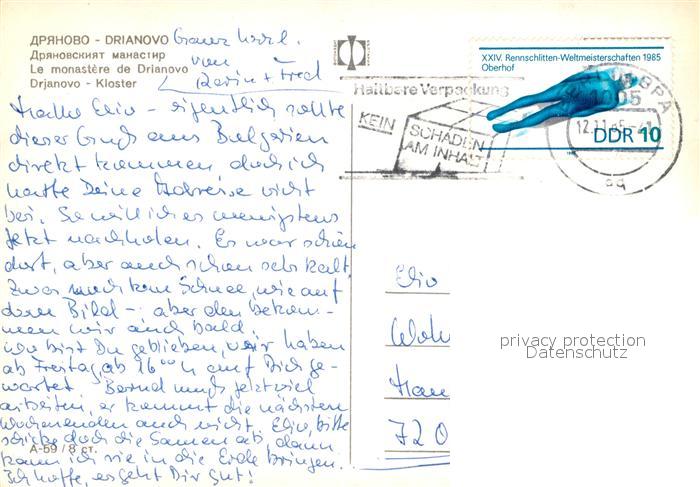 ДРЯНОВО - DRIANOVO
Дряновският манастир
Le monastère de Drianovo
Drjanovo - Kloster
Ganz herzl.
von
Karin + Fred
Hallo Elio - eigentlich sollte
dieser Gruß aus Bulgarien
direkt kommen, doch ich
hatte Deine Adresse nicht
bei. So will ich es wenigstens
jetzt nachholen. Es war schön
dort, aber auch schon sehr kalt.
Zwar noch kein Schnee, wie auf
dem Bild - aber den bekom-
men wir auch bald.
Wo bist Du geblieben, wir haben
ab Freitag, ab 16⁰⁰ h auf Dich ge-
wartet. Bernd muß jetzt viel
arbeiten, er kommt die nächsten
Wochenenden auch nicht. Elio, bitte
schicke doch die Samen ab, dann
kann ich sie in die Erde bringen.
Ich hoffe, es geht Dir gut!
А-59 / 8 ст.
XXIV. Rennschlitten-Weltmeisterschaften 1985
Oberhof
DDR 10
Haltbare Verpackung
KEIN
SCHADEN
AM INHALT
12.11.85
Elio
Woh
720
privacy protection
Datenschutz